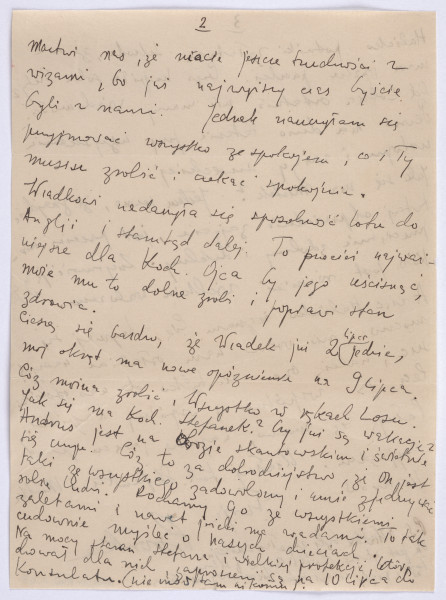 2
martwi nas, że macie jeszcze trudności z
wizami, bo już najwyższy czas byście
byli z nami. Jednak nauczyłam się
przyjmować wszystko ze spokojem, co i Ty
musisz zrobić i czekać spokojnie.
Władkowi nadarzyła się sposobność lotu do
Anglji i stamtąd dalej. To przecież najważ-
niejsze dla Koch. Ojca by jego uścisnąć,
może mu to dobrze zrobi i poprawi stan
zdrowia.
Cieszę się bardzo, że Władek już 2 lipca jedzie,
mój okręt ma nowe opóźnienie na 9 lipca.
Cóż można zrobić, Wszystko w rękach Losu.
Jak się ma Koch. Stefanek? Czy już są wakacje?
Andrus jest na obozie skautowskim i świetnie
się czuje. Cóż to za dobrodziejstwo, że On jest
taki ze wszystkiego zadowolony i umie zjednywać
sobie ludzi. Kochamy Go ze wszystkiemi
zaletami i nawet jeśli ma wadami. To tak
cudownie myśleć o naszych dzieciach.
Na mocy starań Stefana i wielkiej protekcji, którą
dla nich, zaproszeni są na 10 lipca do
Konsulatu. (nie mówiłam nikomu).